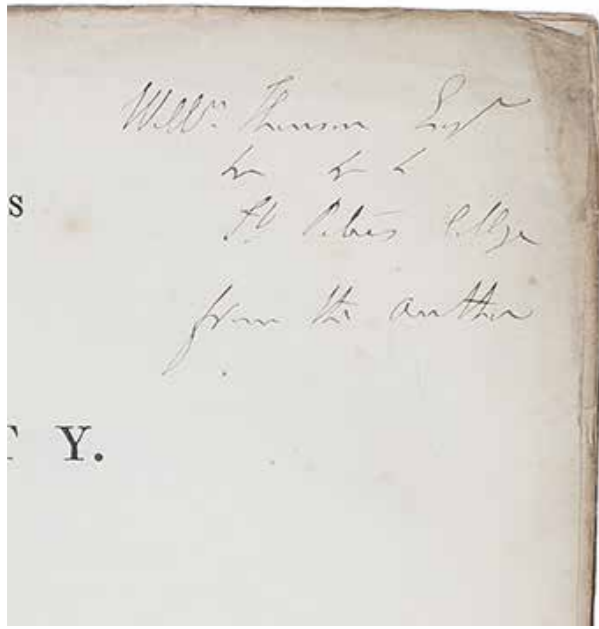 Willm. Thomson Esqr
St Peters College
from the author
S
T Y.